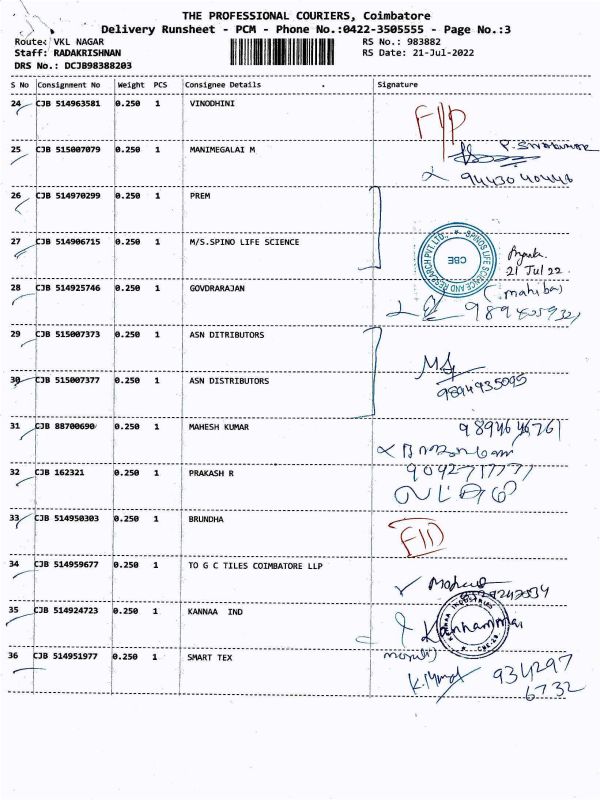 THE PROFESSIONAL COURIERS, Coimbatore
Delivery Runsheet - PCM - Phone No.:0422-3505555 - Page No.:3
Route: VKL NAGAR RS No.: 983882
Staff: RADAKRISHNAN RS Date: 21-Jul-2022
DRS No.: DCJB98388203
S No Consignment No Weight PCS Consignee Details Signature
24 CJB 514963581 0.250 1 VINODHINI
25 CJB 515007079 0.250 1 MANIMEGALAI M
94430 40446
26 CJB 514970299 0.250 1 PREM
27 CJB 514906715 0.250 1 M/S.SPINO LIFE SCIENCE
SPINOS LIFE SCIENCE AND RESEARCH PVT. LTD.
CBE
21 Jul 22
28 CJB 514925746 0.250 1 GOVDRARAJAN
(mahiba)
29 CJB 515007373 0.250 1 ASN DITRIBUTORS
30 CJB 515007377 0.250 1 ASN DISTRIBUTORS
9894935095
31 CJB 88700690 0.250 1 MAHESH KUMAR
9894646761
32 CJB 162321 0.250 1 PRAKASH R
33 CJB 514950303 0.250 1 BRUNDHA
34 CJB 514959677 0.250 1 TO G C TILES COIMBATORE LLP
35 CJB 514924723 0.250 1 KANNAA IND
Kannammai
36 CJB 514951977 0.250 1 SMART TEX
934297
6732